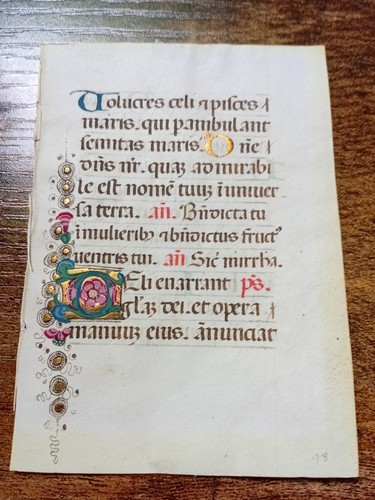 Uolucres celi ⁊ pisces
maris. qui pambulant
semitas maris. Dñe
dñs nr̃. quaʒ admirabi
le est nomẽ tuuʒ ĩ uniuer
sa terra. añ. Bñdicta tu
ĩ mulierib⁊ ⁊ bñdictus fruct⁹
uentris tui. añ Sic̃ mirrha.
Celi enarrant p̃s.
gl̃aʒ dei. et opera
manuuʒ eius. ãnunciat
18